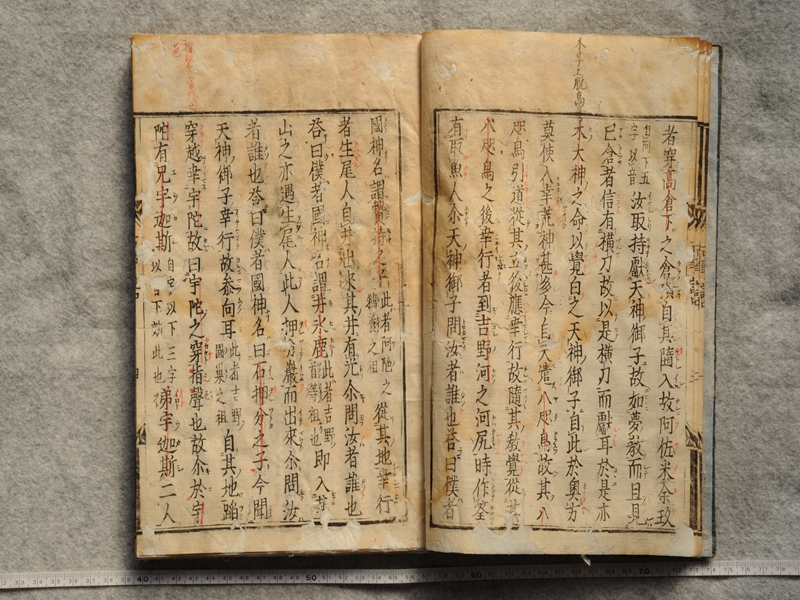 木字上脱高
者穿高倉下之倉頂自其墮入故阿佐米余玖
自阿下五字以音汝取持獻天神御子故如夢教而旦見
己倉者信有横刀故以是横刀而獻耳於是亦
木大神之命以覺白之天神御子自此於奥方
莫使入幸荒神甚多今自天遣八咫烏故其八
咫烏引道從其立後應幸行故隨其教覺從其
八咫烏之後幸行者到吉野河之河尻時作筌
有取魚人尒天神御子問汝者誰也答曰僕者
國神名謂贄持之子此者阿陁之鵜養之祖從其地幸行
者生尾人自井出來其井有光尒問汝者誰也
答曰僕者國神名謂井氷鹿此者吉野首等祖也即入其
山之亦遇生尾人此人押分巖而出來尒問汝
者誰也答曰僕者國神名曰石押分之子今聞
天神御子幸行故參向耳此者吉野國巢之祖自其地蹈
穿越幸宇陀故曰宇陀之穿指聲也故尒於宇
陀有兄宇迦斯自宇以下三字以音下效此也弟宇迦斯二人